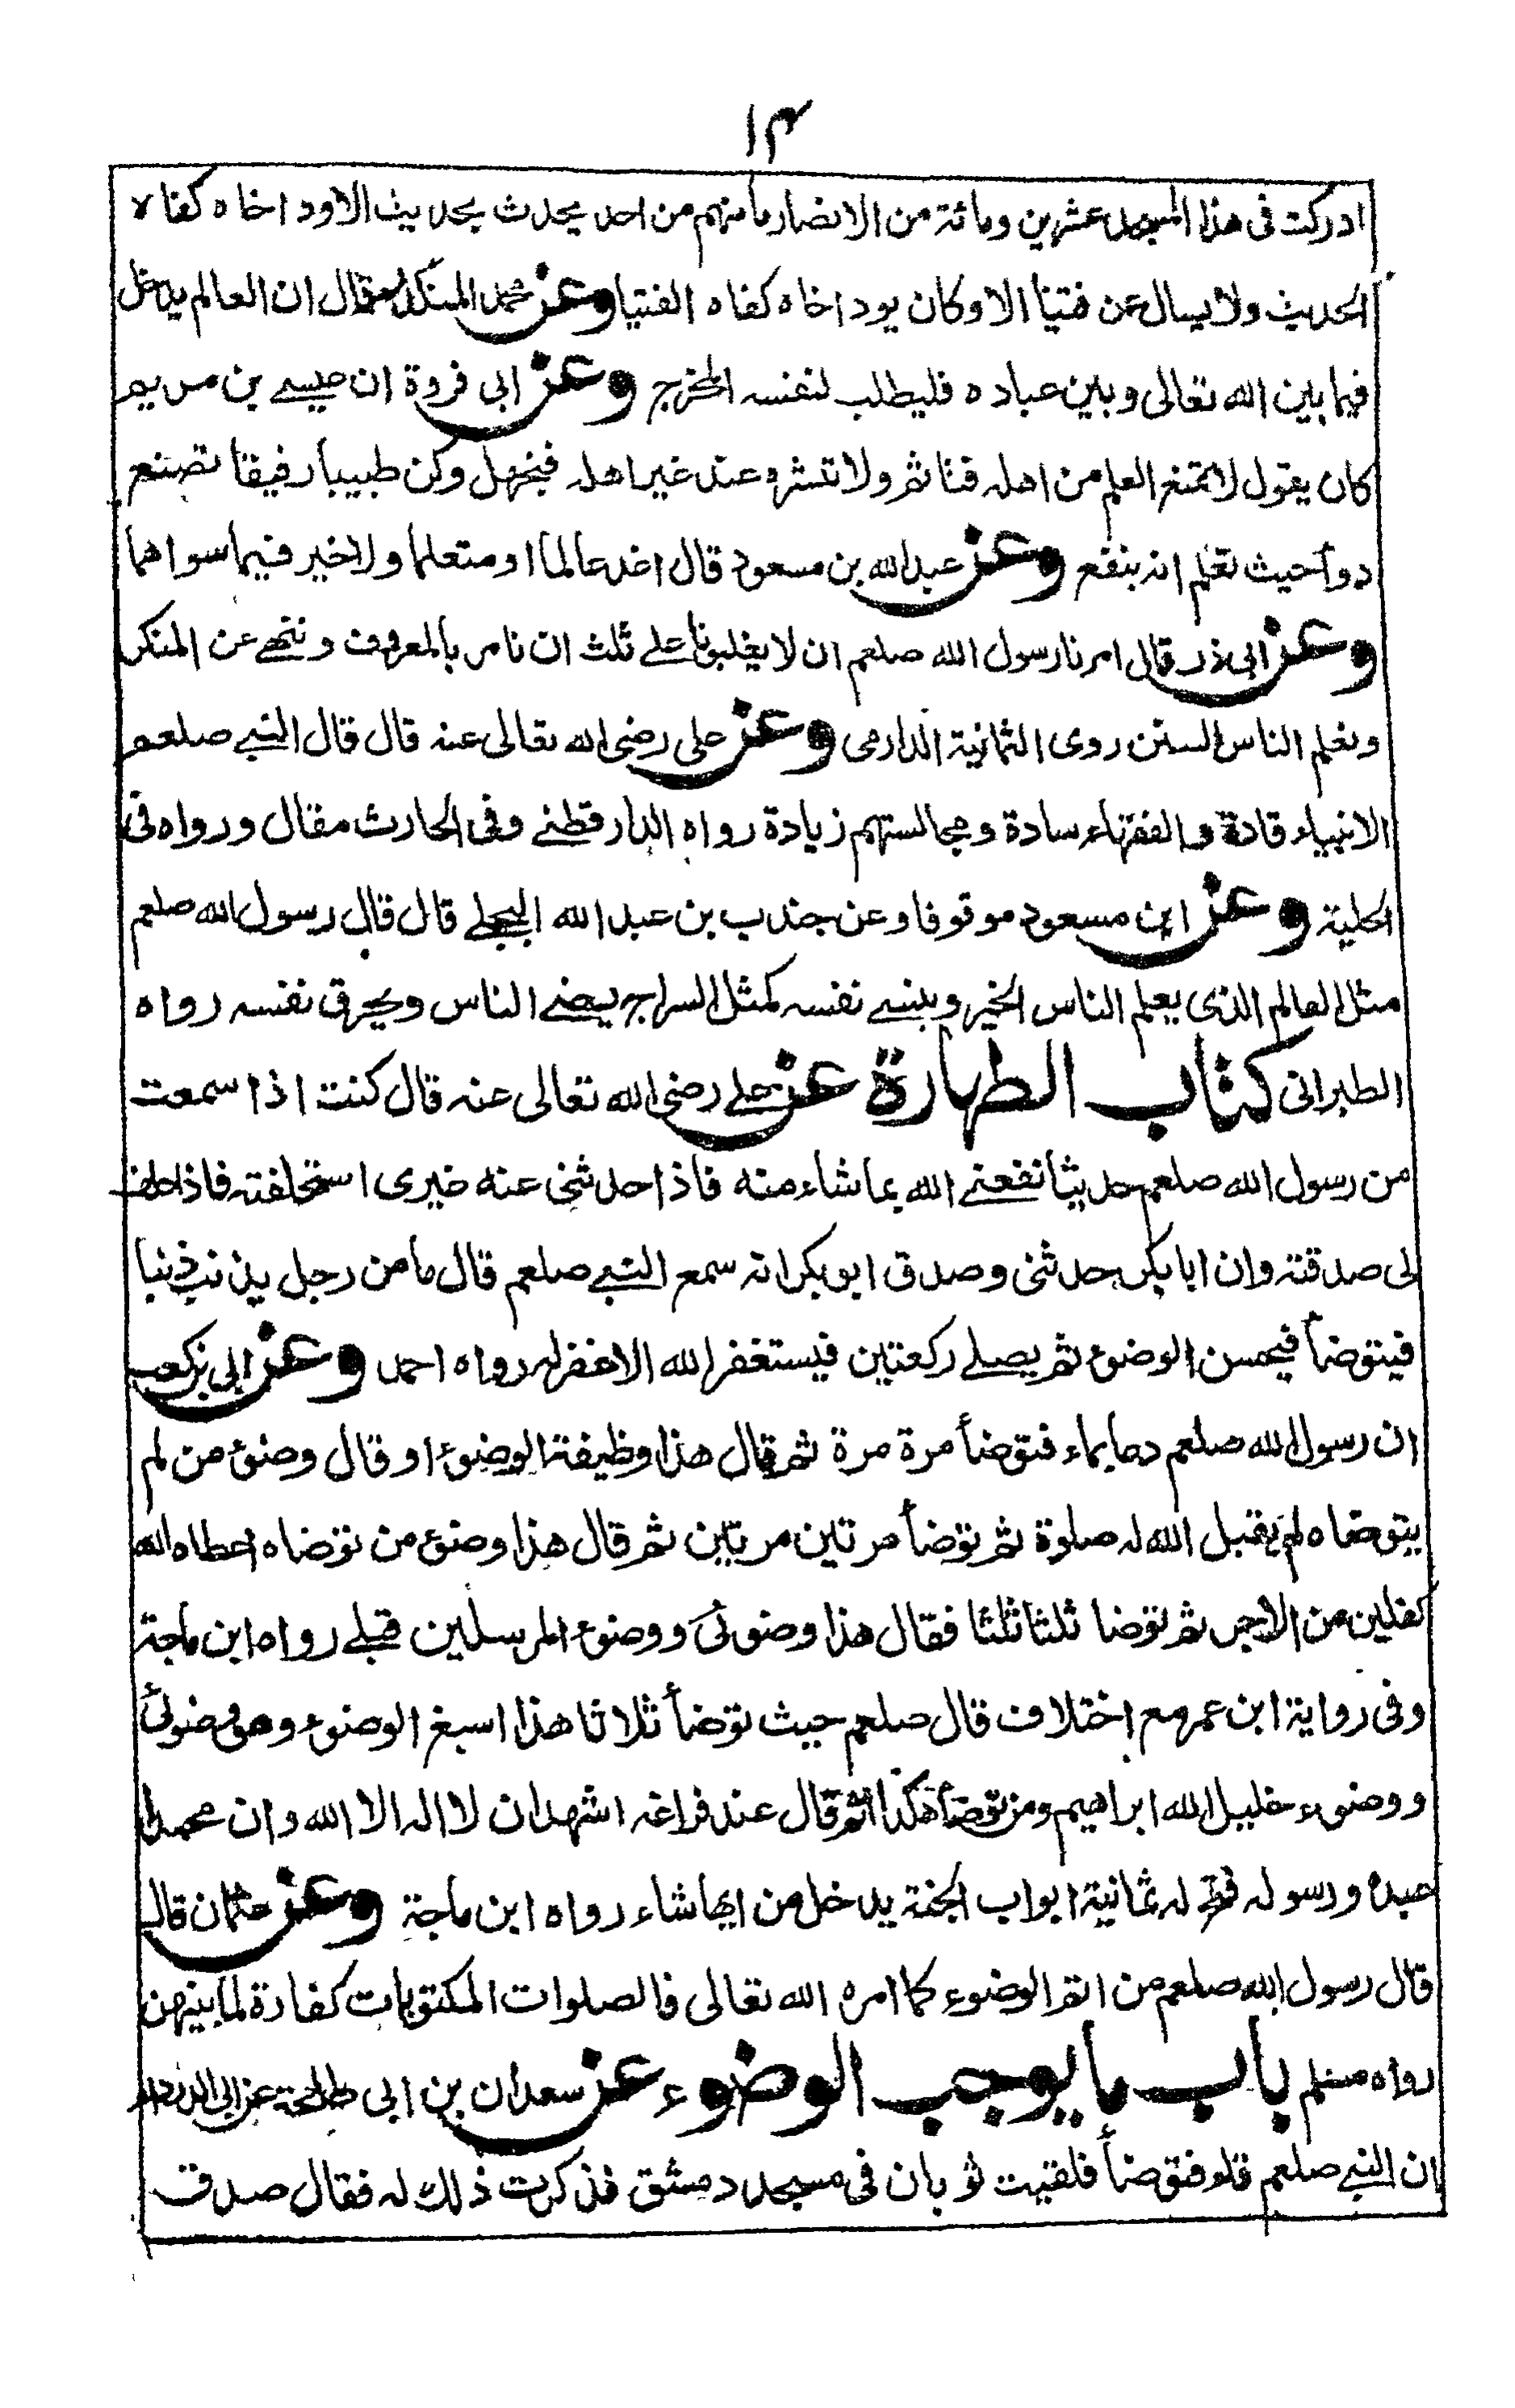 ١٣
ادركت فى هذا المسجد عشرين ومائة من الانصار ما منهم من احد يحدث بحديث الاود اخاه كفاه
الحديث ولا يسال عن فتيا الا وكان يود اخاه كفاه الفتيا وعن محمد المنكدر قال ان العالم يدخل
فيما بين الله تعالى وبين عباده فليطلب لنفسه المخرج وعن ابى فروة ان عيسى بن مريم
كان يقول لا تمنع العلم من اهله فتاثم ولا تنشره عند غير اهله فتجهل وكن طبيبا رفيقا تصنع
دوأ حيث تعلم انه ينفع وعن عبد الله بن مسعود قال اغد عالما او متعلما ولا خير فيما سواهما
وعن ابى ذر قال امرنا رسول الله صلعم ان لا يغلبونا على ثلث ان نامر بالمعروف وننهى عن المنكر
ونعلم الناس السنن روى الثمانية الدارمى وعن على رضى الله تعالى عنه قال قال النبى صلعم
الانبياء قادة والفقهاء سادة ومجالستهم زيادة رواه الدارقطنى وفى الحارث مقال ورواه فى
الحلية وعن ابن مسعود موقوفا وعن جندب بن عبد الله البجلى قال قال رسول الله صلعم
مثل العالم الذى يعلم الناس الخير وينسى نفسه كمثل السراج يضئ الناس ويحرق نفسه رواه
الطبرانى كتاب الطهارة عن على رضى الله تعالى عنه قال كنت اذا سمعت
من رسول الله صلعم حديثا نفعنى الله بما شاء منه فاذا حدثنى عنه غيرى استحلفته فاذا حلف
لى صدقته وان ابا بكر حدثنى وصدق ابو بكر انه سمع النبى صلعم قال ما من رجل يذنب ذنبا
فيتوضأ فيحسن الوضوع ثم يصلى ركعتين فيستغفر الله الا غفر له رواه احمد وعن ابى بن كعب
ان رسول الله صلعم دعا بماء فتوضأ مرة مرة ثم قال هذا وظيفة الوضوع او قال وضوع من لم
يتوضاه لم يقبل الله له صلوة ثم توضأ مرتين مرتين ثم قال هذا وضوع من توضاه اعطاه الله
كفلين من الاجر ثم توضا ثلثا ثلثا فقال هذا وضوئى ووضوع المرسلين قبلى رواه ابن ماجة
وفى رواية ابن عمر مع اختلاف قال صلعم حيث توضأ ثلاثا هذا اسبغ الوضوء وهو وضوئى
ووضوء خليل الله ابراهيم ومن توضأ هكذا ثم قال عند فراغه اشهد ان لا اله الا الله وان محمدا
عبده ورسوله فتح له ثمانية ابواب الجنة يدخل من ايها شاء رواه ابن ماجة وعن عثمان قال
قال رسول الله صلعم من اتم الوضوء كما امره الله تعالى فالصلوات المكتوبات كفارة لما بينهن
رواه مسلم باب ما يوجب الوضوء عن سعدان بن ابى طلحة عن ابى الدرداء
ان النبى صلعم قاء فتوضأ فلقيت ثوبان فى مسجد دمشق فذكرت ذلك له فقال صدق